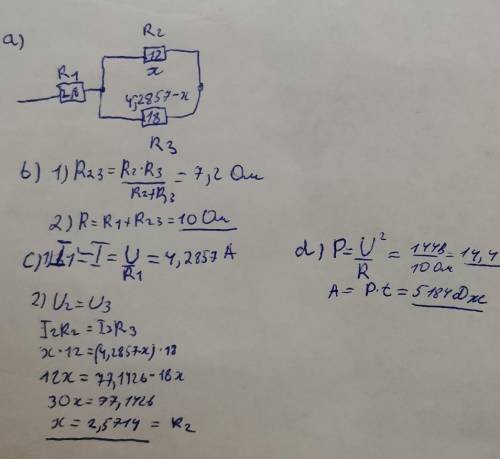 a)
R2
12
x
R1
2,8
4,2857-x
18
R3
b) 1) R23 = R2·R3 / R2+R3 = 7,2 Ом
2) R = R1 + R23 = 10 Ом
c) 1) I1 = I = U / R1 = 4,2857 А
2) U2 = U3
I2R2 = I3R3
x·12 = (4,2857-x)·18
12x = 77,1426 - 18x
30x = 77,1426
x = 2,5714 = R2
d) P = U² / R = 144В / 10 Ом = 14,4
A = P·t = 5184 Дж